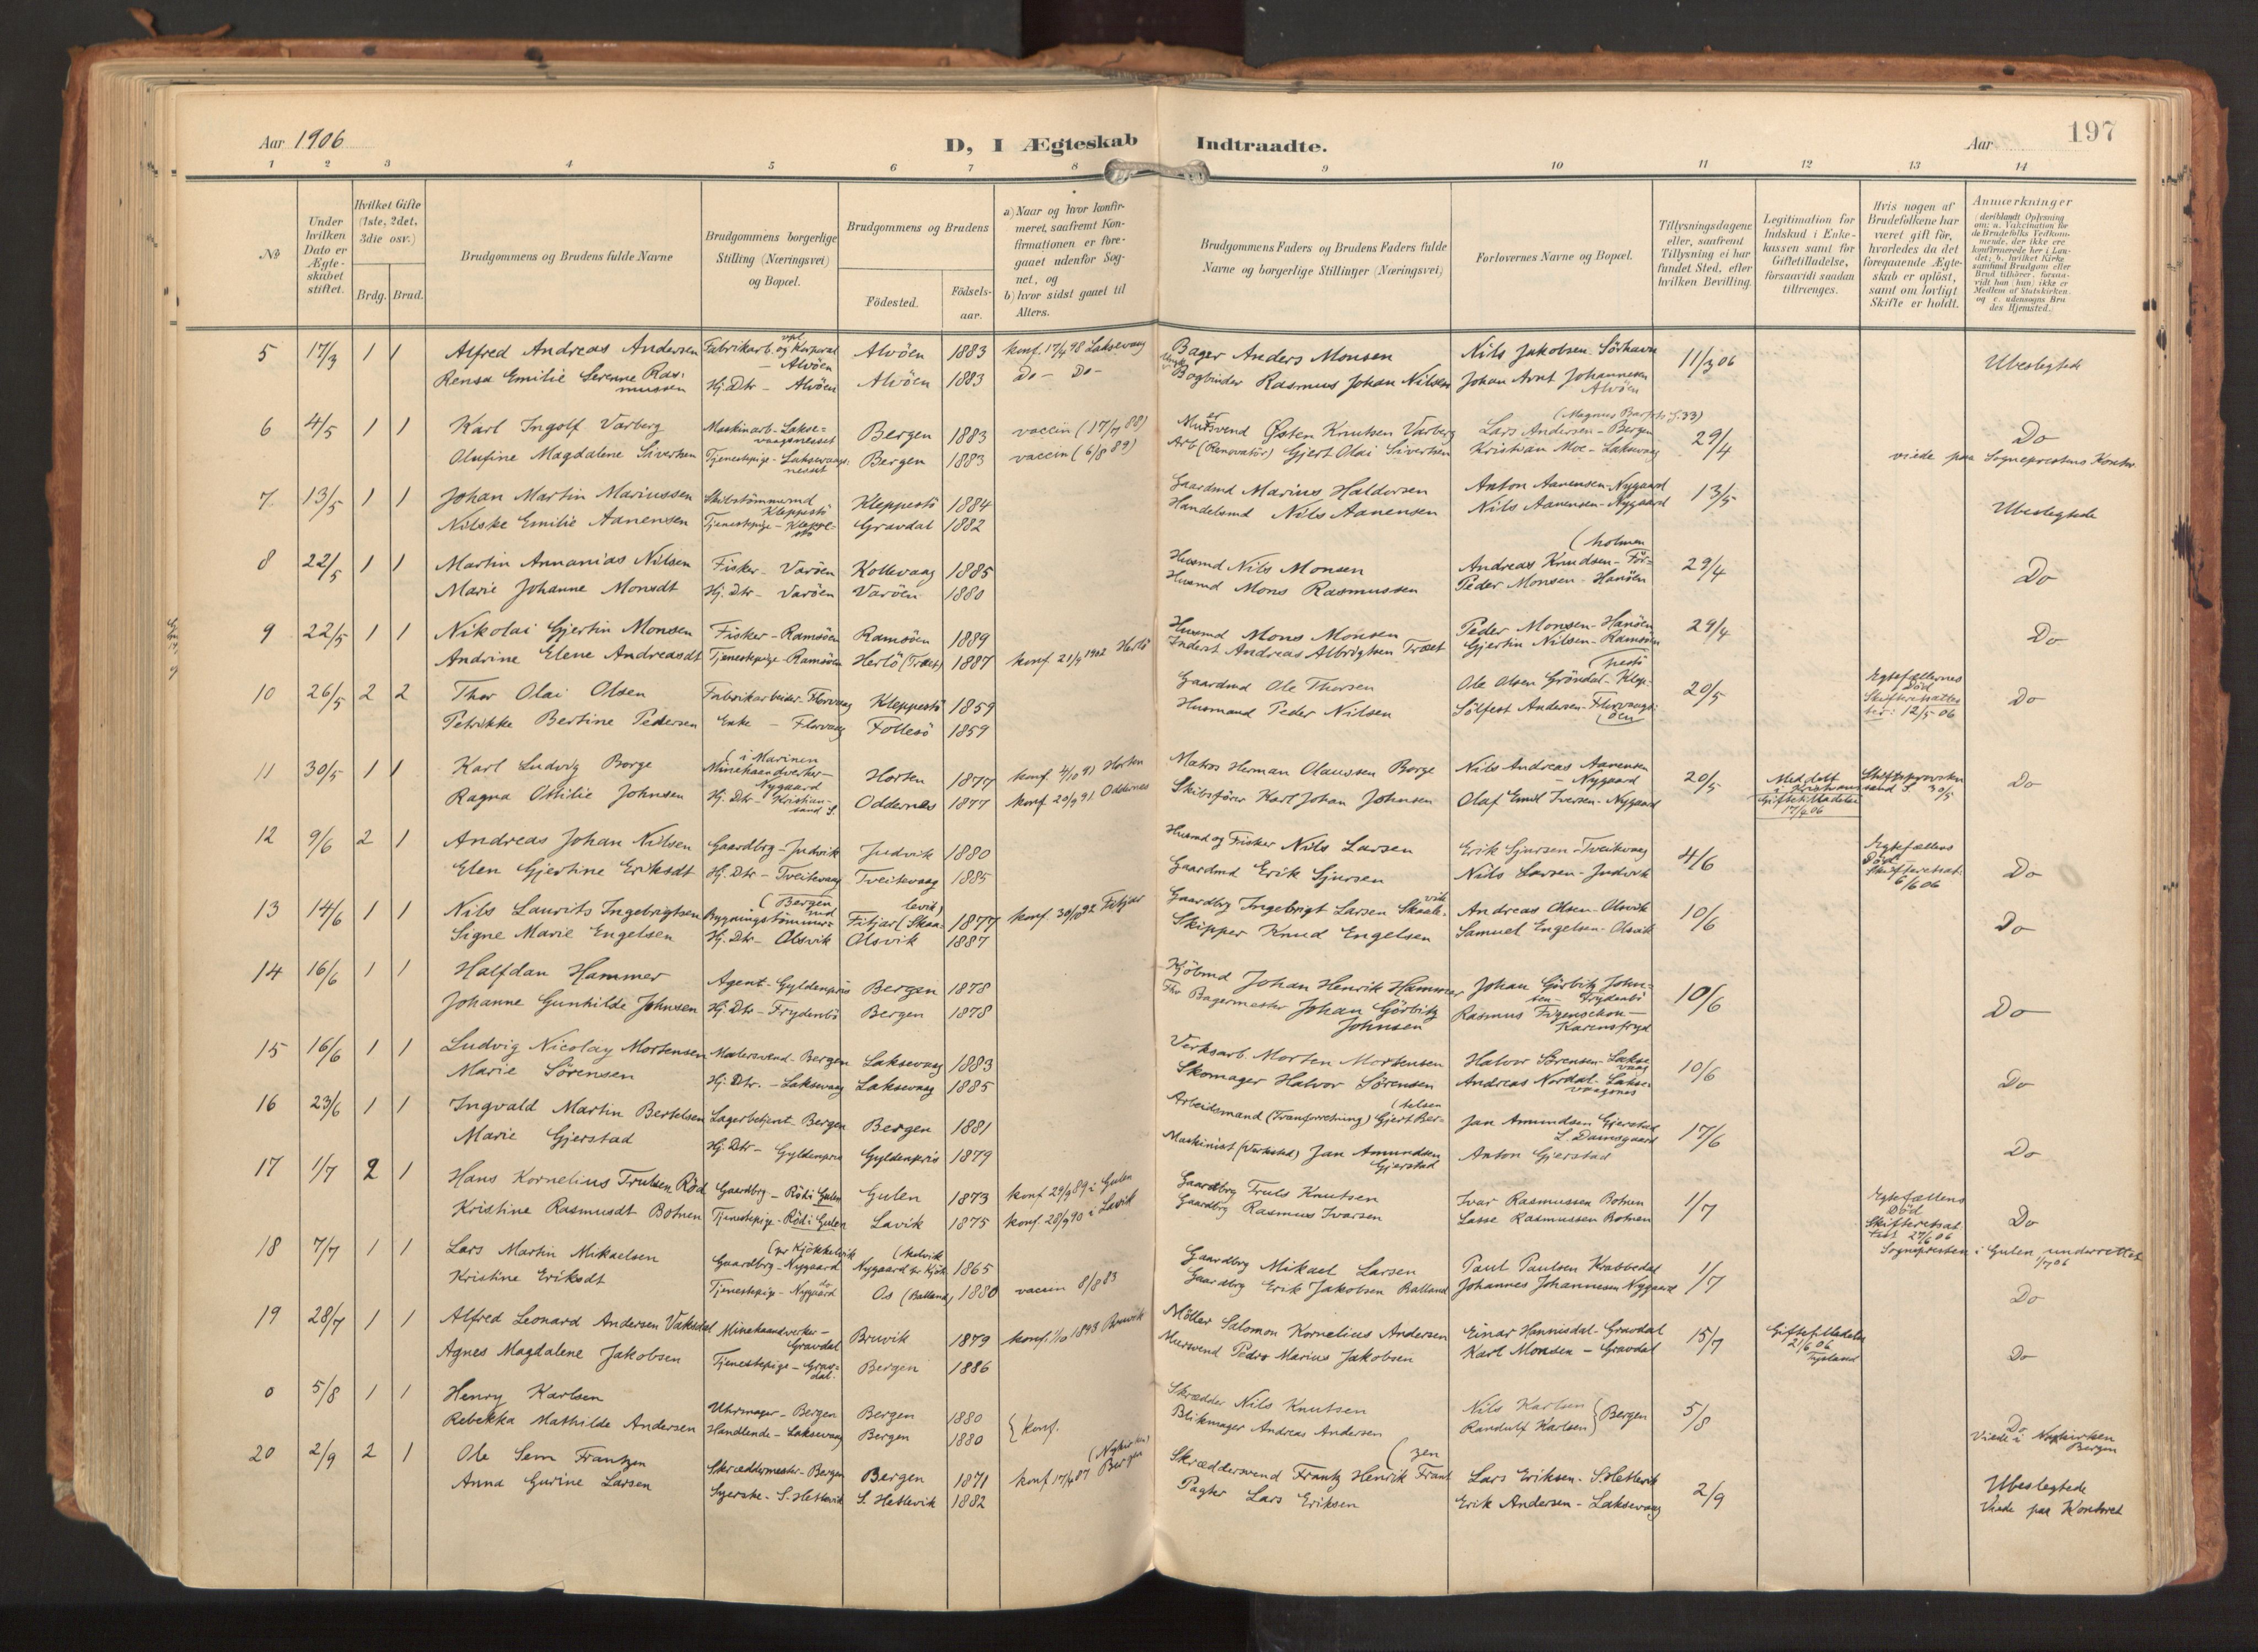 Aar 1906
D, I Ægteskab Indtraadte.
Aar
197
1 2 3 4 5 6 7 8 9 10 11 12 13 14
No
Under hvilken Dato er Ægteskabet stiftet.
Hvilket Gifte (1ste, 2det, 3die osv.)
Brdg. Brud.
Brudgommens og Brudens fulde Navne
Brudgommens borgerlige Stilling (Næringsvei) og Bopæl.
Brudgommens og Brudens
Födested.
Födsels-aar.
a) Naar og hvor konfirmeret, saafremt Konfirmationen er foregaaet udenfor Sognet, og
b) hvor sidst gaaet til Alters.
Brudgommens Faders og Brudens Faders fulde Navne og borgerlige Stillinger (Næringsvei)
Forlovernes Navne og Bopæl.
Tillysningsdagene eller, saafremt Tillysning ei har fundet Sted, efter hvilken Bevilling.
Legitimation for Indskud i Enkekassen samt for Giftetilladelse, forsaavidt saadan tiltrænges.
Hvis nogen af Brudefolkene har været gift før, hvorledes da det foregaaende Ægteskab er oplöst, samt om lovligt Skifte er holdt.
Anmærkninger
(deriblandt Oplysning om: a. Vakcination for de Brudefolks Vedkommende, der ikke ere konfirmerede her i Landet; b. hvilket Kirkesamfund Brudgom eller Brud tilhörer, forsaavidt han (hun) ikke er Medlem af Statskirken, og c. udensogns Brudes Hjemsted.)
5 17/3 1 1 Alfred Andreas Andersen Fabrikarb. og Korporal - Alvöen Alvöen 1883 konf. 17/4 98 Laksevaag Bager Anders Monsen Nils Jakobsen Sörhavn 11/3 06 Ubeslegtede
Rensa Emilie Serenne Rasmussen Hj. Dtr - Alvöen Alvöen 1883 Do - Do - Bogbinder Rasmus Johan Nilsen Johan Arnt Johannesen Alvöen
6 4/5 1 1 Karl Ingolf Varberg Maskinarb - Laksevaagnesset Bergen 1883 vaccin (17/7 88) Mursvend Østen Knutsen Varberg Lars Andersen - Bergen (Magnus Barfots g. 33) 29/4 Do
Olufine Magdalene Sivertsen Tjenestepige - Laksevaagnesset Bergen 1883 vaccin (6/8 89) Arb (Renovatör) Gjert Olai Sivertsen Kristian Moe - Laksevaag viede paa Sogneprestens Kontor
7 13/5 1 1 Johan Martin Mariussen Skibstömmermd Kleppestö Kleppestö 1884 Gaardmd Marius Haldorsen Anton Aanensen - Nygaard 13/5
Nilske Emilie Aanensen Tjenestepige - Kleppestö Gravdal 1882 Handelsmd Nils Aanensen Nils Aanensen - Nygaard Ubeslegtede
8 22/5 1 1 Martin Annanias Nilsen Fisker - Varöen Kollevaag 1885 Husmd Nils Monsen Andreas Knudsen - Förholmen 29/4 Do
Marie Johanne Monsdt Hj. Dtr - Varöen Varöen 1880 Husmd Mons Rasmussen Peder Monsen - Hanöen
9 22/5 1 1 Nikolai Gjertin Monsen Fisker - Ramsöen Ramsöen 1889 Husmd Mons Monsen Peder Monsen - Hanöen 29/4 Do
Andrine Elene Andreasdt Tjenestepige - Ramsöen Herlö (Træt) 1887 konf. 21/9 1902 Herlö Inderst Andreas Albrigtsen Træet Gjertin Nilsen - Ramsöen
10 26/5 2 2 Thor Olai Olsen Fabrikarbeider - Florvaag Kleppestö 1859 Gaardmd Ole Thorsen Ole Olsen Gröndal - Kleppestö 20/5 Egtefællernes Död Skifteretsattester: 12/5 06 Do
Petrikke Bertine Pedersen Enke - Florvaag Follesö 1859 Husmand Peder Nilsen Sölfest Andersen - Florvaagöen
11 30/5 1 1 Karl Ludvig Borge Minehaandverker i Marinen - Nygaard Horten 1877 konf. 4/10 91 Horten Matros Herman Olaussen Borge Nils Andreas Aanensen - Nygaard 20/5 Do
Ragna Ottilie Johnsen Hj. Dtr - Kristiansand S. Oddernes 1877 konf. 20/9 91 Oddernes Skibsförer Karl Johan Johnsen Olaf Emil Iversen - Nygaard Giftetilladelse 17/4 06
12 9/6 2 1 Andreas Johan Nilsen Gaardbrg - Judvik Judvik 1880 Husmd og Fisker Nils Larsen Erik Sjursen - Tveitevaag 4/6 Egtefællens Död Skifteretsat. 6/6 06 Do
Elen Gjertine Eriksdt Hj. Dtr - Tveitevaag Tveitevaag 1885 Gaardmd Erik Sjursen Nils Larsen - Judvik
13 14/6 1 1 Nils Laurits Ingebrigtsen Bygningstömmermd (Bergen Fitjar (Skaalevik) 1877 konf. 30/10 92 Fitjar Gaardbrg Ingebrigt Larsen Skaalevik Andreas Olsen - Olsvik 10/6 Do
Signe Marie Engelsen Hj. Dtr - Olsvik Olsvik 1887 Skipper Knud Engelsen Samuel Engelsen - Olsvik
14 16/6 1 1 Halfdan Hammer Agent - Gyldenpris Bergen 1878 Kjöbmd Johan Henrik Hammer Johan Görbitz Johnsen - Frydenbö 10/6 Do
Johanne Gunhilde Johnsen Hj. Dtr - Frydenbö Bergen 1878 Fhv Bagermester Johan Görbitz Johnsen Rasmus Figenschou - Karensfryd
15 16/6 1 1 Ludvig Nicolay Mortensen Malersvend - Bergen Laksevaag 1883 Verksarb. Morten Mortensen Halvor Sörensen - Laksevaag 10/6 Do
Marie Sörensen Hj. Dtr. - Laksevaag Laksevaag 1885 Skomager Halvor Sörensen Andreas Nordal - Laksevaagnes
16 23/6 1 1 Ingvald Martin Bertelsen Lagerbetjent - Bergen Bergen 1881 Arbeidsmand (Tranforretning) Gjert Bertelsen Jan Amundsen Gjerstad L. Damsgaard 17/6 Do
Marie Gjerstad Hj. Dtr - Gyldenpris Gyldenpris 1879 Maskinist (Verksted) Jan Amundsen Gjerstad Anton Gjerstad
17 1/7 2 1 Hans Kornelius Trulsen Röd Gaardbrg - Röd i Gulen Gulen 1873 konf 29/9 89 i Gulen Gaardbrg Truls Knutsen Ivar Rasmussen Botnen 1/7 Egtefællens Död Skifteretsattest 27/6 06 Do
Kristine Rasmusdt Botnen Tjenestepige - Röd i Gulen Lavik 1875 konf. 28/9 90 i Lavik Gaardbrg Rasmus Ivarsen Lasse Rasmussen Botnen Sognepresten i Gulen underrettet 1/7 06
18 7/7 1 1 Lars Martin Mikaelsen Gaardbrg - Nygaard (pr Kjökkelvik Nygaard pr Kjökkelvik 1865 Gaardbrg Mikael Larsen Paul Paulsen Krabbedal 1/7 Do
Kristine Eriksdt Tjenestepige - Nygaard do Os (Balland) 1880 vaccin 8/8 83 Gaardbrg Erik Jakobsen Balland Johannes Johannesen Nygaard
19 28/7 1 1 Alfred Leonard Andersen Vaksdal Minehaandverker - Gravdal Bruvik 1879 konf. 1/10 1893 Bruvik Möller Salomon Kornelius Andersen Einar Hannisdal - Gravdal 15/7 Giftetilladelse 21/6 06 Do
Agnes Magdalene Jakobsen Tjenestepige - Gravdal. Bergen 1886 Mursvend Peder Marius Jakobsen Karl Monsen - Gravdal
0 5/8 1 1 Henry Karlsen Uhrmager - Bergen Bergen 1880 } konf. Skrædder Nils Knutsen Nils Karlsen } Bergen 5/8 Do Viede i Nykirken Bergen
Rebekka Mathilde Andersen Handlende - Laksevaag Bergen 1880 Blikmager Andreas Andersen Randulf Karlsen
20 2/9 2 1 Ole Sem Frantzen Skræddermester - Bergen Bergen 1871 konf 17/4 87 Bergen (Nykirken) Skræddersvend Frantz Henrik Frantzen Lars Eriksen - S. Hetlevik 2/9 Ubeslegtede
Anna Gurine Larsen Syerske - S. Hetlevik S. Hetlevik 1882 Pagter Lars Eriksen Erik Andersen - Laksevaag Viede paa Kontoret